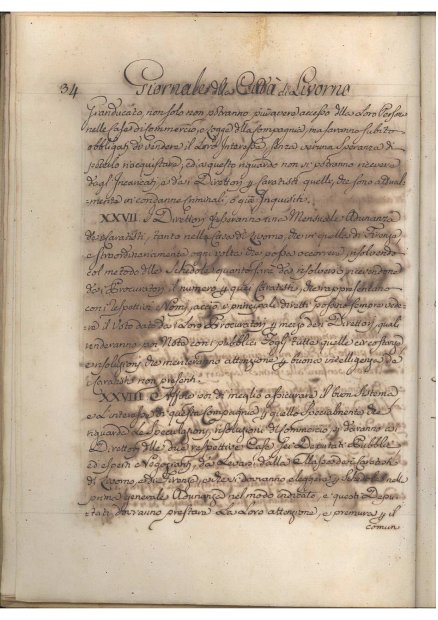 34 Giornale della Città di Livorno
Granducato, non solo non potranno più avere accesso alle Loro Persone
nelle Case di Commercio, o Loggie della Compagnia, ma saranno subito
obbligati di vendere il Loro Interesse, senza veruna speranza di
poterlo riacquistare, ed a questo riguardo non si potranno ricevere
dagl' Incaricati, e dai Direttori, Caratisti quelli, che sono attual-
mente in condanne criminali, o già Inquisiti.
XXVII. I Direttori faranno una Mensuale Adunanza
de' Caratisti, tanto nella Città di Livorno, che in quella di Firenze,
e straordinariamente ogni volta che possa occorrere, risolvendo
col metodo delle Schedole quanto sarà da risolversi, ricevendo
dai Procuratori il numero, quai Caratisti, che rappresentano
con i respettivi Nomi, acciò i principali diretti possino sempre vede-
re il Voto dato da Loro Procuratori, mezzo dei Direttori, quali
renderanno con Note, con i pubblici Fogli tutte quelle
resoluzioni, che meritano attenzione, buona intelligenza de'
Caratisti non presenti.
XXVIII. Affine poi di meglio assicurare il buon sistema
e l' interesse di questa Compagnia, quello specialmente che
riguarda le speculazioni, risoluzioni di Commercio, daranno ai
Direttori delle due respettive Case tre Deputati Pubblici
ed esperti Negozianti, da Levarsi dalla Massa dei Caratisti
di Livorno, e di Firenze, che si dovranno eleggere nella
prima generale Adunanza nel modo indicato, e questi Depu-
tati dovranno prestare la Loro attenzione, e premura, il
comun